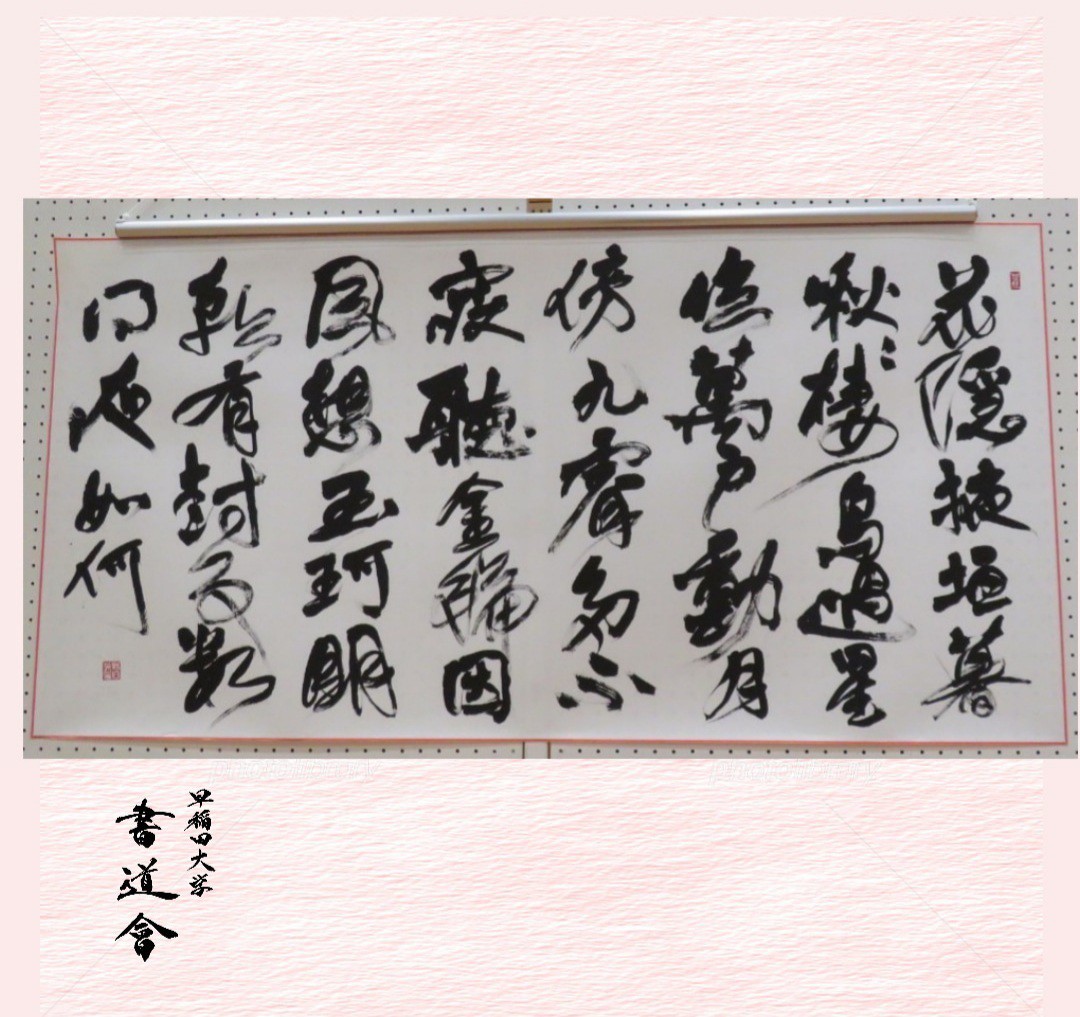 花隱掖垣暮
啾々棲鳥過星
臨萬戶動月
傍九霄多不
寢聽金鑰因
風想玉珂明
朝有封事数
問夜如何
早稲田大学
書道會